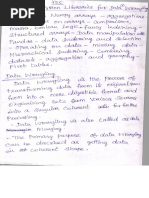 Python Libraries for Data Wrangling
Numpy arrays - aggregations
Structured arrays - Data manipulation with
Pandas - data indexing and selection
- Operating on data - missing data -
Hierarchical indexing - Combining
datasets - aggregation and grouping -
Pivot tables
Data Wrangling
Data Wrangling is the process of
transforming data from its original
form into a more digestible format and
organizing sets from various sources
into a singular coherent
Data Wrangling is also called as data
The primary purpose of data Wrangling
can be described as getting data